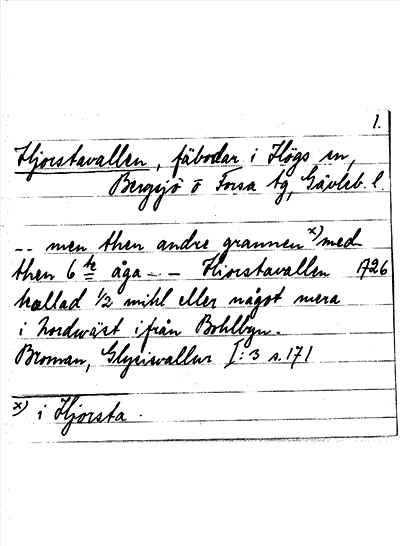 1.
Hjorstavallen, fäbodar i Högs sn,
Bergsjö o Forsa tg, Gävleb. l.
-- men then andre grannen x) med
then 6 te åga -- Hiorstavallen 1726
kallad 1/2 mihl eller något mera
i nordwäst ifrån Bohlbyn.
Broman, Glysisvallur I:3 s. 171
x) i Hjorsta.